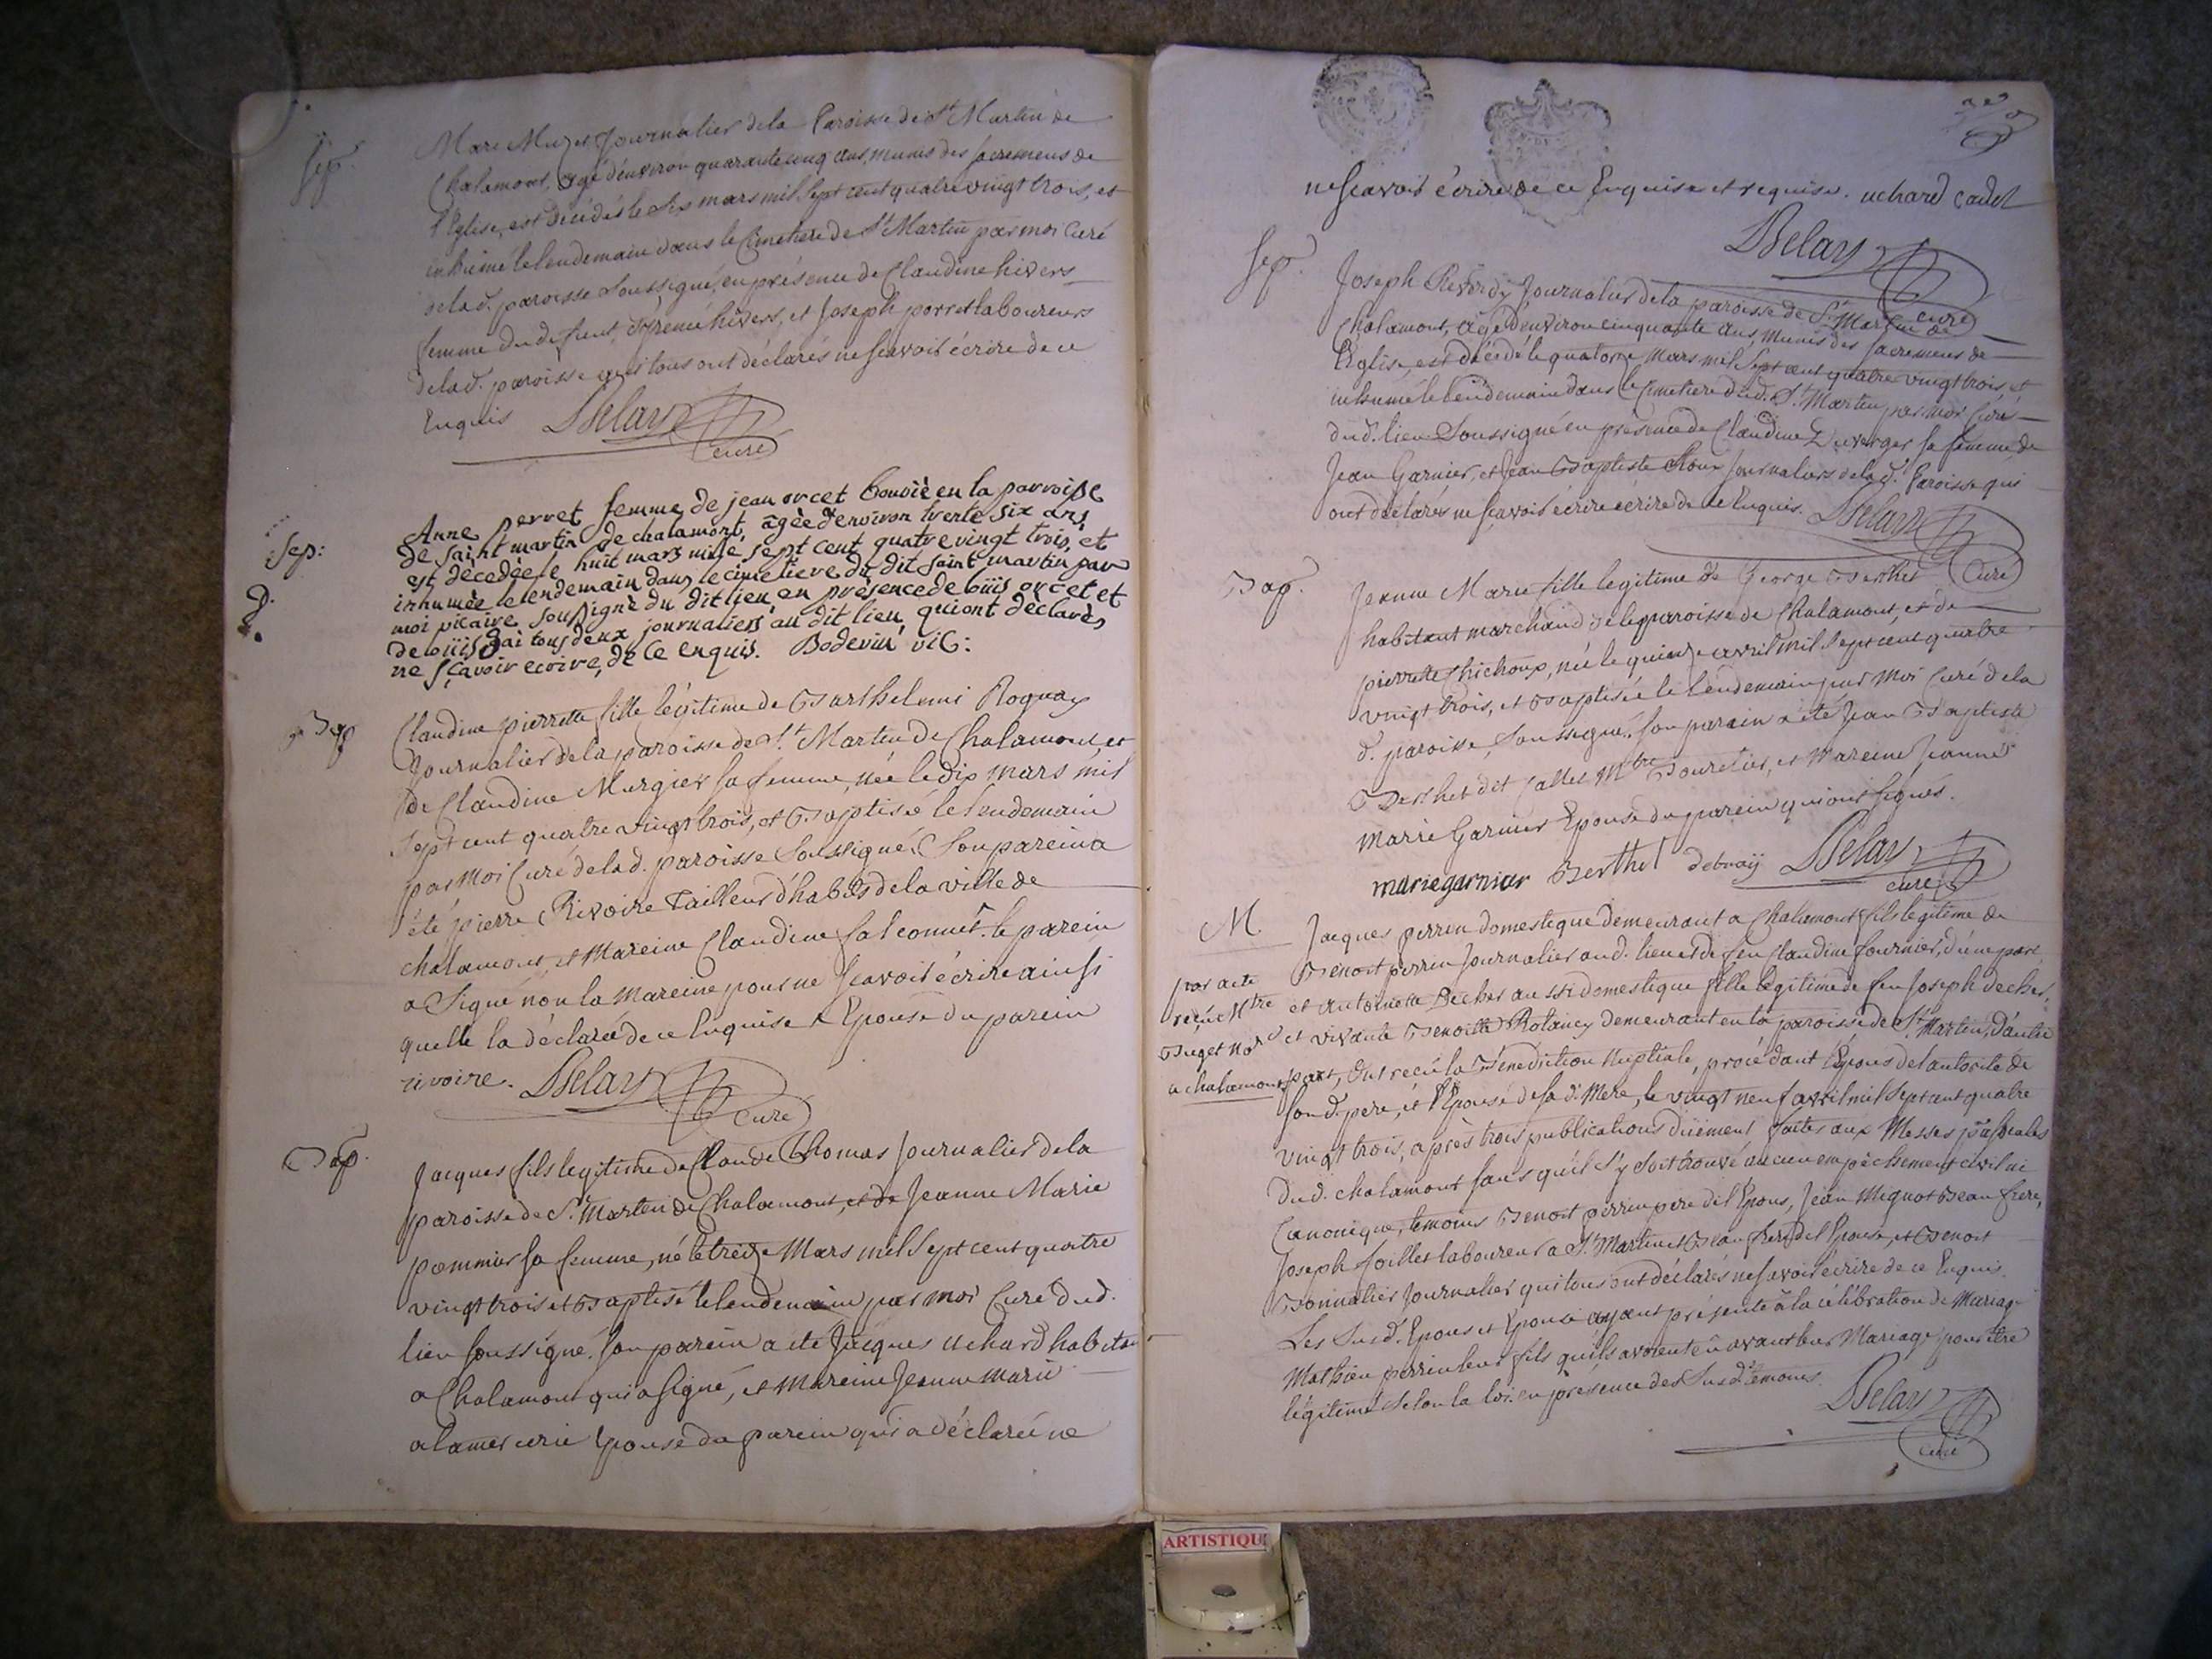 Sep.
Marc Muzet Journalier dela Paroisse de St Martin de
Chalamont, agé d'environ quarante cinq ans, munis des sacremens de
l'Eglise, est décédé le six mars mil sept cent quatre vingt trois, et
inhumé le lendemain dans le Cimetiere de St Martin par moi Curé
de lad. paroisse soussigné, en présence de Claudine hivers
femme du defunt, hivers, et Joseph porret laboureurs
de lad. paroisse qui tous ont déclarés ne scavoir écrire de ce
Enquis Delay
curé
Sep:
Anne perret femme de jean orcet bouvié en la parroisse
de saint martin de chalamont, âgèe d'environ trente six ans,
est dècedèe le huit mars mille sept cent quatre vingt trois, et
inhumèe le lendemain dans le cimetiere du dit saint martin par
moi vicaire soussignè du dit lieu, en prèsence de loüis orcet et
de loüis Jai tous deux journaliers au dit lieu, qui ont dèclarès
ne sçavoir ecrire, de ce enquis. Bodevin vic:
Bap
Claudine pierrette fille légitime de Barthelemi Roguay
Journalier de la paroisse de St. Martin de Chalamont, et
de Claudine Murgier sa femme, née le dix mars mil
sept cent quatre vingt trois, et Baptisée le lendemain
par moi Curé de lad. paroisse soussigné. Son parein a
été pierre Rivoire tailleur d'habits de la ville de
chalamont, et Mareine Claudine falconnet. le parein
a signé non la mareine pour ne scavoir écrire ainsi
quelle la déclaré de ce Enquise Epouse du parein
rivoire. Delay
Curé
Bap.
Jacques fils legitime de Claude Thomas Journalier de la
paroisse de St. Martin de Chalamont, et de Jeanne Marie
pommier sa femme, né le treize Mars mil sept cent quatre
vingt trois et Baptisé le lendemain par moi Curé dud.
lieu soussigné. Son parein a été Jacques uchard habitan
a Chalamont qui a signé, et mareine Jeanne Marie
alamercerie Epouse du parein qui a déclarée ne
ne scavoir écrire de ce Enquise et requise. uchard cadet
Delay
curé
Sep.
Joseph Reverdy Journalier de la paroisse de St. Martin de
Chalamont, âgé d'environ cinquante ans, munis des sacremens de
l'Eglise, est décédé le quatorze mars mil sept cent quatre vingt trois, et
inhumé le lendemain dans le Cimetiere dud. St. Martin par moi Curé
dud. lieu Soussigné en présence de Claudine Duverger sa femme, de
Jean Garnier, et Jean Baptiste Journaliers de lad. Paroisse qui
ont déclarés ne scavoir écrire écrire de ce Enquis. Delay
Curé
Bap.
Jeanne Marie fille legitime de George Berthet
habitant marchand de la paroisse de Chalamont, et de
pierrette Chichoux, née le quinze avril mil sept cent quatre
vingt trois, et Baptisée le lendemain par moi Curé de la
d. paroisse, soussigné. son parain a été Jean Baptiste
Berthet dit Mtre Bourelier, et Mareine Jeanne
Marie Garnier Epouse du parein qui ont signés.
marie garnier Berthet debvaij Delay
curé
M.
par acte
reçu Mtre
Buget Nore
a chalamont
Jacques perrin domestique demeurant a Chalamont fils legitime de
Benoit perrin Journalier aud. lieu et de feu Claudine fournier, d'une part,
et Antoinette Decher aussi domestique fille légitime de feu Joseph decher,
et vivante Benoitte Rolancy demeurant en la paroisse de St. Martin, d'autre
part, ont reçu la Bénédiction nuptiale, procédant l'Epous de l'autorité de
son d. pere, et l'Epouse de sa d. Mere, le vingt neuf avril mil sept cent quatre
vingt trois, après trois publications düement faites aux Messes
dud. chalamont sans qu'il s'y soit trouvé aucun empêchement civil ni
Canonique, temoins Benoit perrin pere de l'Epous, Jean Mignot Beau frere,
Joseph foillet laboureur a St. Martin et Beau frere de l'Epouse, et Benoit
Bonnatier Journalier qui tous ont déclarés ne savoir écrire de ce Enquis.
Les susd. Epous et Epouse ayant présenté à la célébration du Mariage
Mathieu perrin leur fils qu'ils avoient eu avant leur Mariage pour être
légitimé selon la loi. en présence des Susd. témoins.
Delay
curé
ARTISTIQU